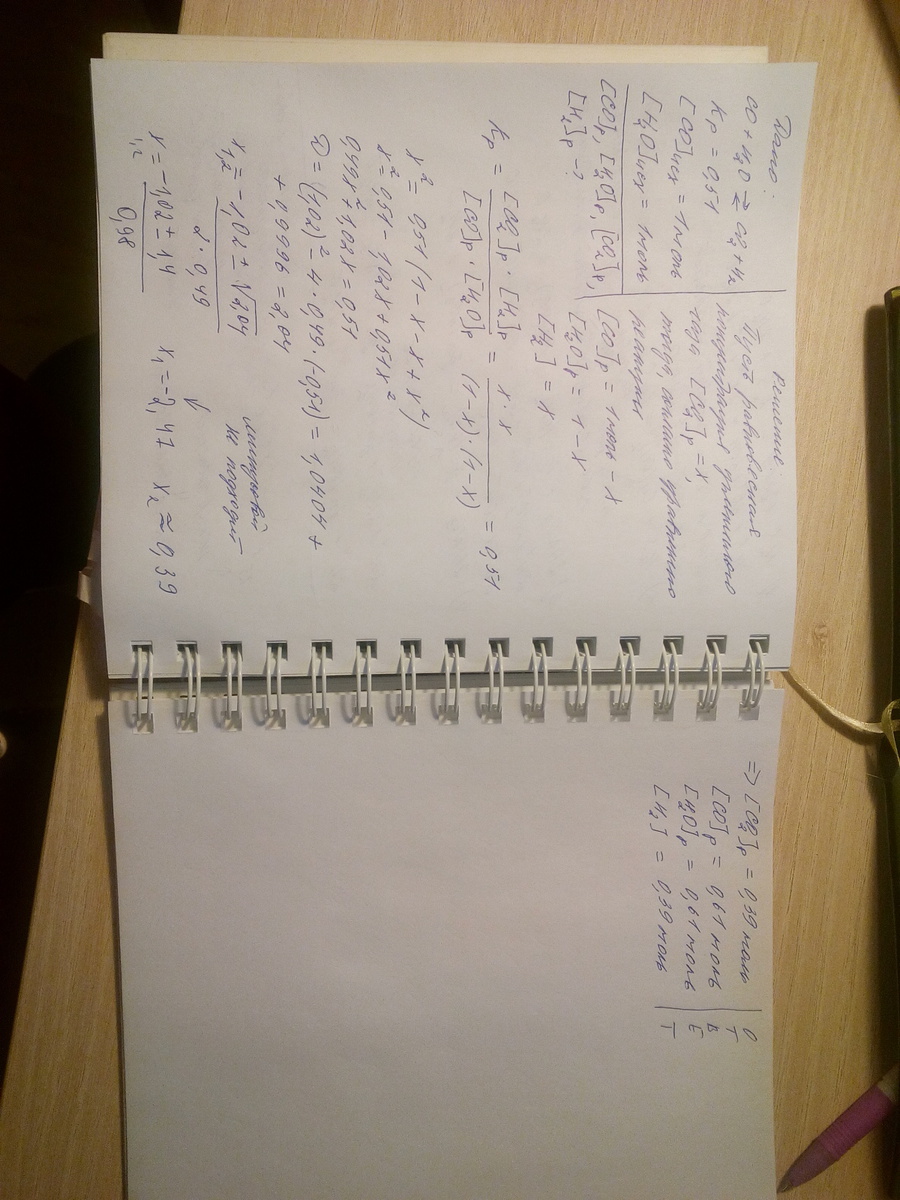 Дано:
CO + H₂O ⇄ CO₂ + H₂
Kp = 0,51
[CO]исх = 1 моль
[H₂O]исх = 1 моль
[CO]p, [H₂O]p, [CO₂]p,
[H₂]p - ?
Решение:
Пусть равновесная
концентрация углекислого
газа [CO₂]p = x,
тогда, согласно уравнению
реакции
[CO]p = 1 моль - x
[H₂O]p = 1 - x
[H₂] = x
Kp = [CO₂]p · [H₂]p / [CO]p · [H₂O]p = x · x / (1-x) · (1-x) = 0,51
x² = 0,51 (1 - x - x + x²)
x² = 0,51 - 1,02x + 0,51x²
0,49x² + 1,02x = 0,51
D = (1,02)² - 4 · 0,49 · (-0,51) = 1,0404 +
+ 0,9996 = 2,04
x₁,₂ = -1,02 ± √2,04 / 2 · 0,49
x₁,₂ = -1,02 ± 1,4 / 0,98
x₁ = -2,47 x₂ ≈ 0,39
не подходит
=> [CO₂]p = 0,39 моль
[CO]p = 0,61 моль
[H₂O]p = 0,61 моль
[H₂] = 0,39 моль
О
Т
В
Е
Т